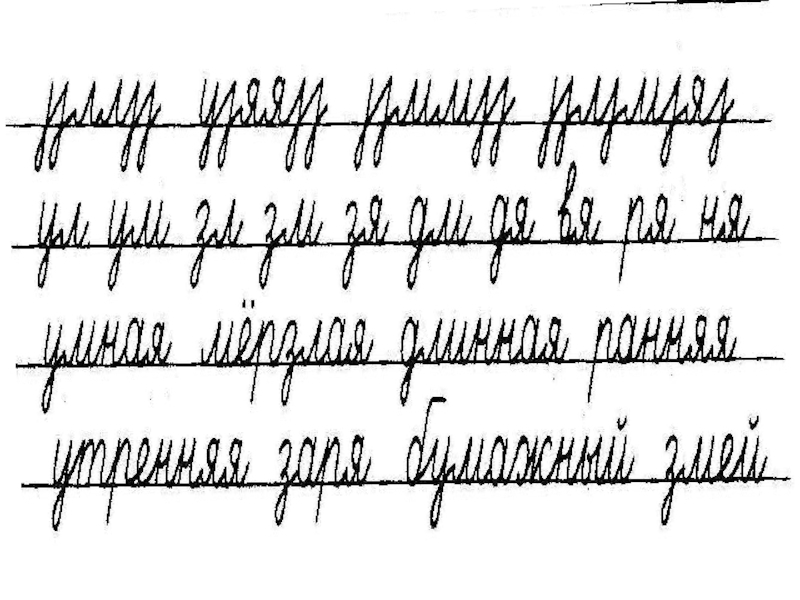 ул ум зл зм зя дм дя вя ря ня
умная мёрзлая длинная ранняя
утренняя заря бумажный змей